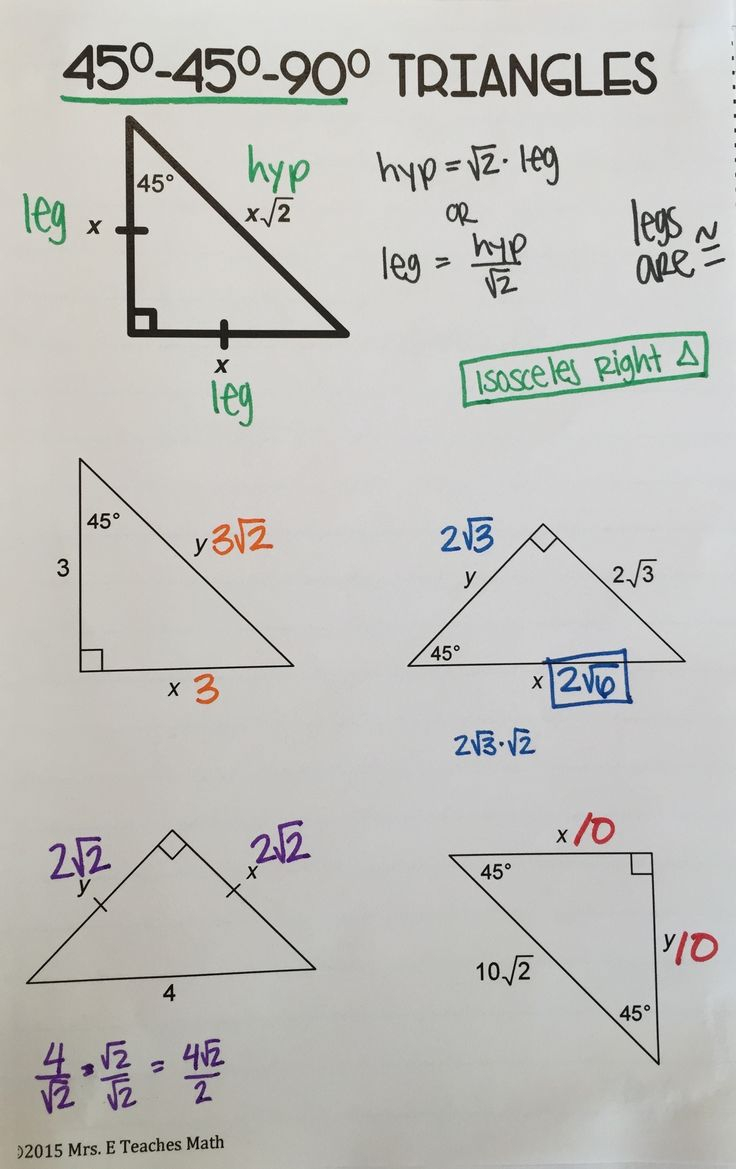 45°-45°-90° TRIANGLES
45°
hyp
leg
x
x√2
x
leg
hyp = √2 · leg
OR
leg = hyp/√2
legs
are ≅
Isosceles Right Δ
45°
3
y 3√2
x 3
2√3
y
2√3
45°
x 2√6
2√3·√2
2√2
y
2√2
x
4
4/√2 · √2/√2 = 4√2/2
x 10
45°
y 10
10√2
45°
©2015 Mrs. E Teaches Math